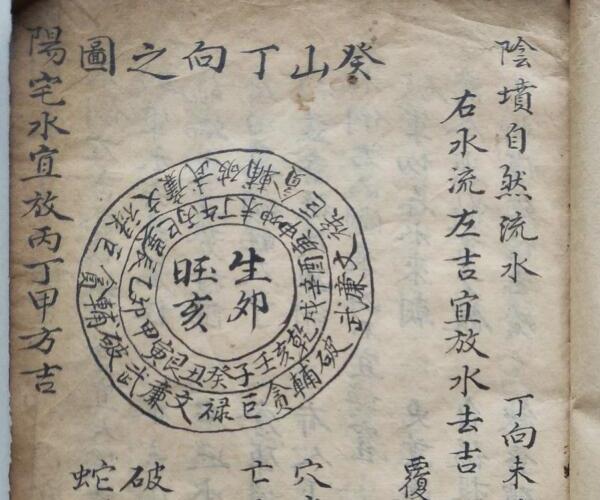 陰墳自然流水 丁向未
右水流左吉宜放水去吉
覆
癸山丁向之圖
生卯
旺亥
子壬亥乾戌辛酉庚申坤未丁午丙巳巽辰乙卯甲寅艮丑癸
貪輔破武廉文禄巨貪輔破武廉文禄巨貪輔破武廉文禄巨
穴
亡
破
蛇
陽宅水宜放丙丁甲方吉